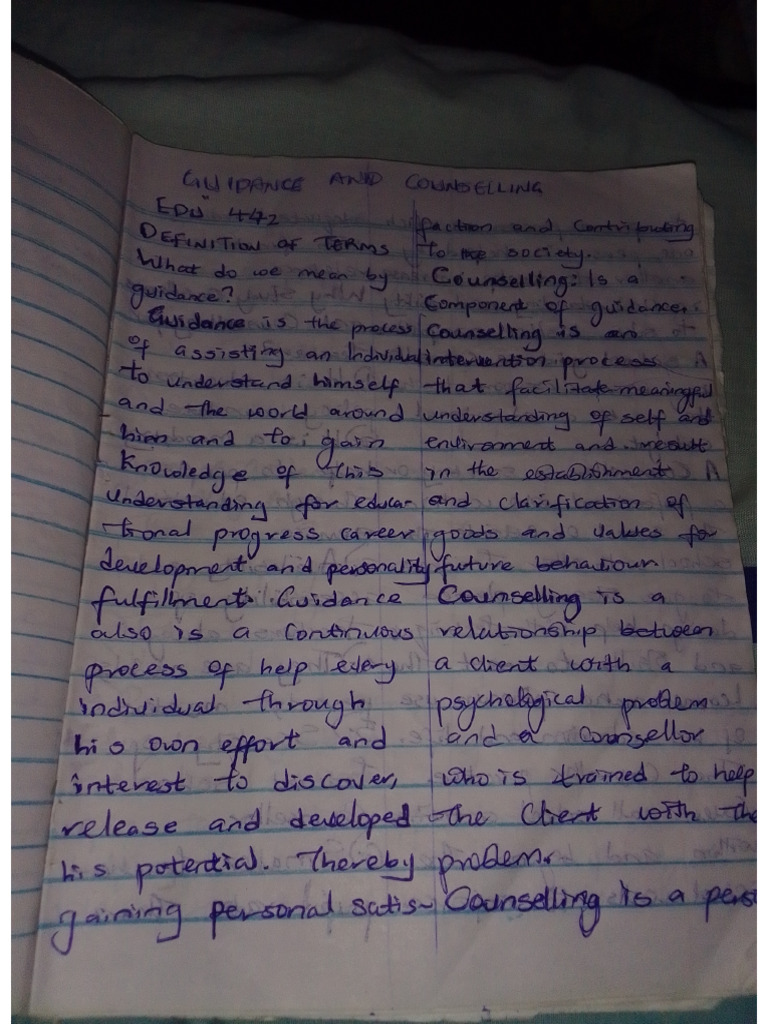 GUIDANCE AND COUNSELLING
EDU 442
DEFINITION OF TERMS
What do we mean by
guidance?
Guidance is the process
of assisting an Individual
to understand himself
and the world around
him and to gain
knowledge of this
understanding for educa-
tional progress career
development and personality
fulfillment. Guidance
also is a continuous
process of help every
individual through
his own effort and
interest to discover,
release and developed
his potential. Thereby
gaining personal satis-
faction and Contributing
to the society.
Counselling: Is a
Component of guidance.
Counselling is an
intervention process
that facilitate meaningful
understanding of self and
environment and result
in the establishment
and clarification of
goods and values for
future behaviour
Counselling is a
relationship between
a client with a
psychological problem
and a counsellor
who is trained to help
the Client with the
problem.
Counselling is a pers